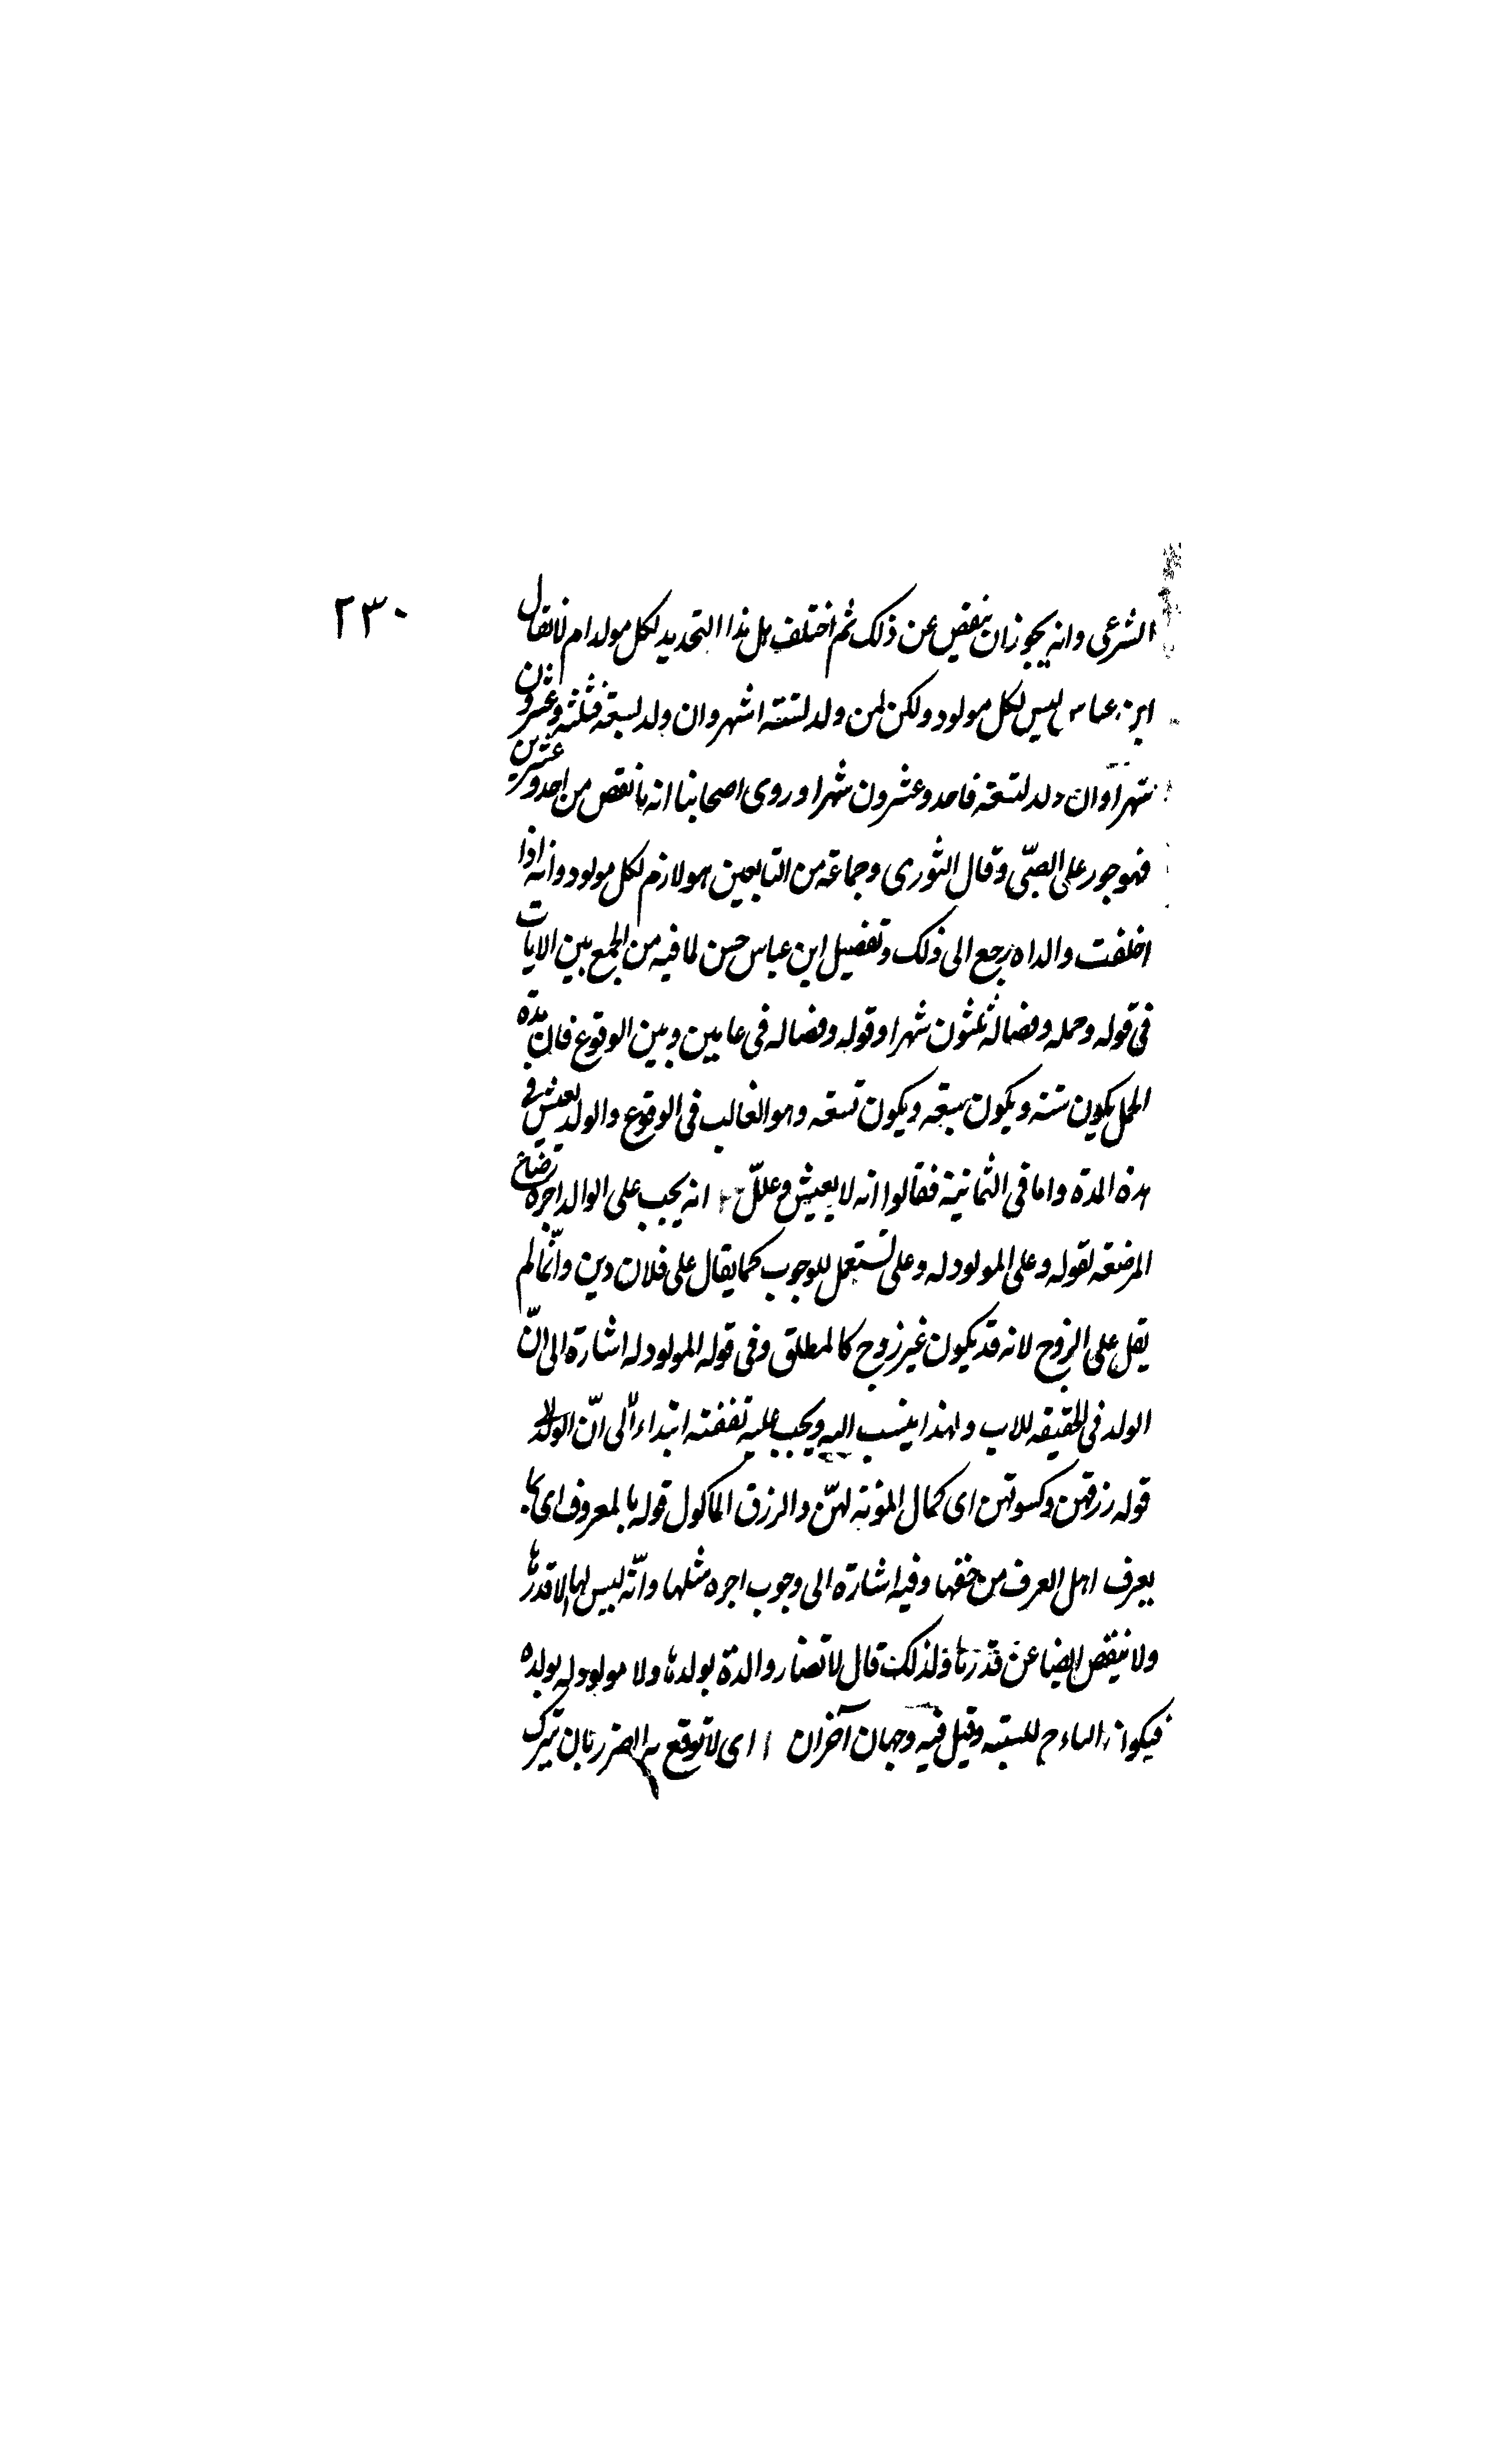 ٢٣٠
الشرعى وانه يجوز ان ينقص عن ذلك ثم اختلف هل هذا التحديد لكل مولد ام لا فقال
ابن عباس ليس لكل مولود ولكن لمن ولد لستة اشهر وان ولد لسبعة فثلثة وعشرون
شهرا وان ولد لتسعة فاحد وعشرون شهرا وروى اصحابنا انه ما نقص من احد وعشرين
فهو جور على الصبّى وقال الثورى وجماعة من التابعين هو لازم لكل مولود وانه اذا
اختلفت والداه رجع الى ذلك وتفصيل ابن عباس حسن لما فيه من الجمع بين الايات
فى قوله وحمله وفصاله ثلثون شهرا وقوله وفصاله فى عامين وبين الوقوع فان مدة
الحمل يكون ستة ويكون سبعة ويكون تسعة وهو الغالب فى الوقوع والولد يعيش فى
هذه المدة واما فى الثمانية فقالوا انه لا يعيش وعلل انه يجب على الوالد اجرة رضاع
المرضعة لقوله وعلى المولود له وعلى تستعمل للوجوب كما يقال على فلان دين وانّما لم
يقل على الزوج لانه قد يكون غير زوج كالمطلق وفى قوله المولود له اشارة الى انّ
الولد فى الحقيقه للاب ولهذا ينسب اليه ويجب عليه نفقته ابتداء الى انّ الولد
قوله رزقهن وكسوتهن اى كمال المؤنة لهنّ والرزق الماكول قوله بالمعروف اى بما
يعرف اهل العرف من حقها وفيه اشارة الى وجوب اجره مثلها وانّه ليس لها الا قدرها
ولا ينقص ايضا عن قدرها ولذلك قال لا تضار والدة بولدها ولا مولود له بولده
فيكون الباء للسببة وقيل فيه وجهان آخران ١ اى لا توقع به الضرر بان تترك